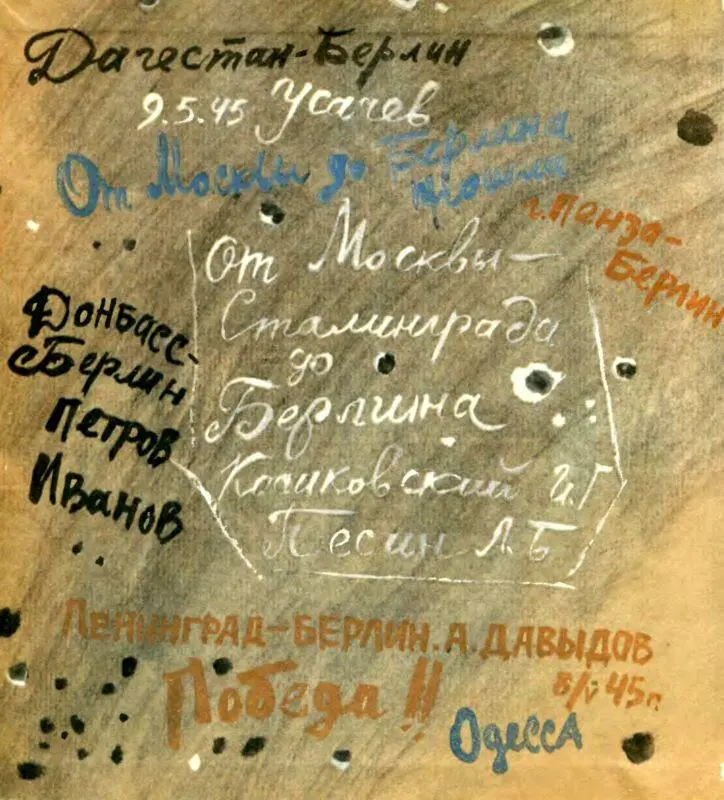 Дагестан-Берлин
9.5.45 Усачев
От Москвы до Берлина
прошли
г. Пенза-
Берлин
От Москвы-
Сталинграда
до
Берлина
Косиковский И.Г
Песин Л.Б
Донбасс-
Берлин
Петров
Иванов
ЛЕНИНГРАД-БЕРЛИН. А. ДАВЫДОВ
8/V 45 г.
Победа !!
Одесса